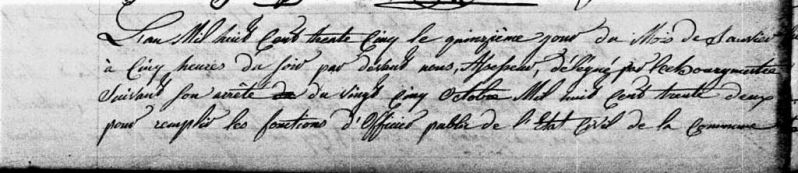 L'an Mil huit Cent trente Cinq le quinzième jour du Mois de Janvier
à Cinq heures du soir par devant nous, Assesseur, délégué par le bourgmestre
suivant son arrêté du vingt Cinq Octobre Mil huit Cent trente deux
pour remplir les fonctions d'Officier public de l'Etat Civil de la Commune